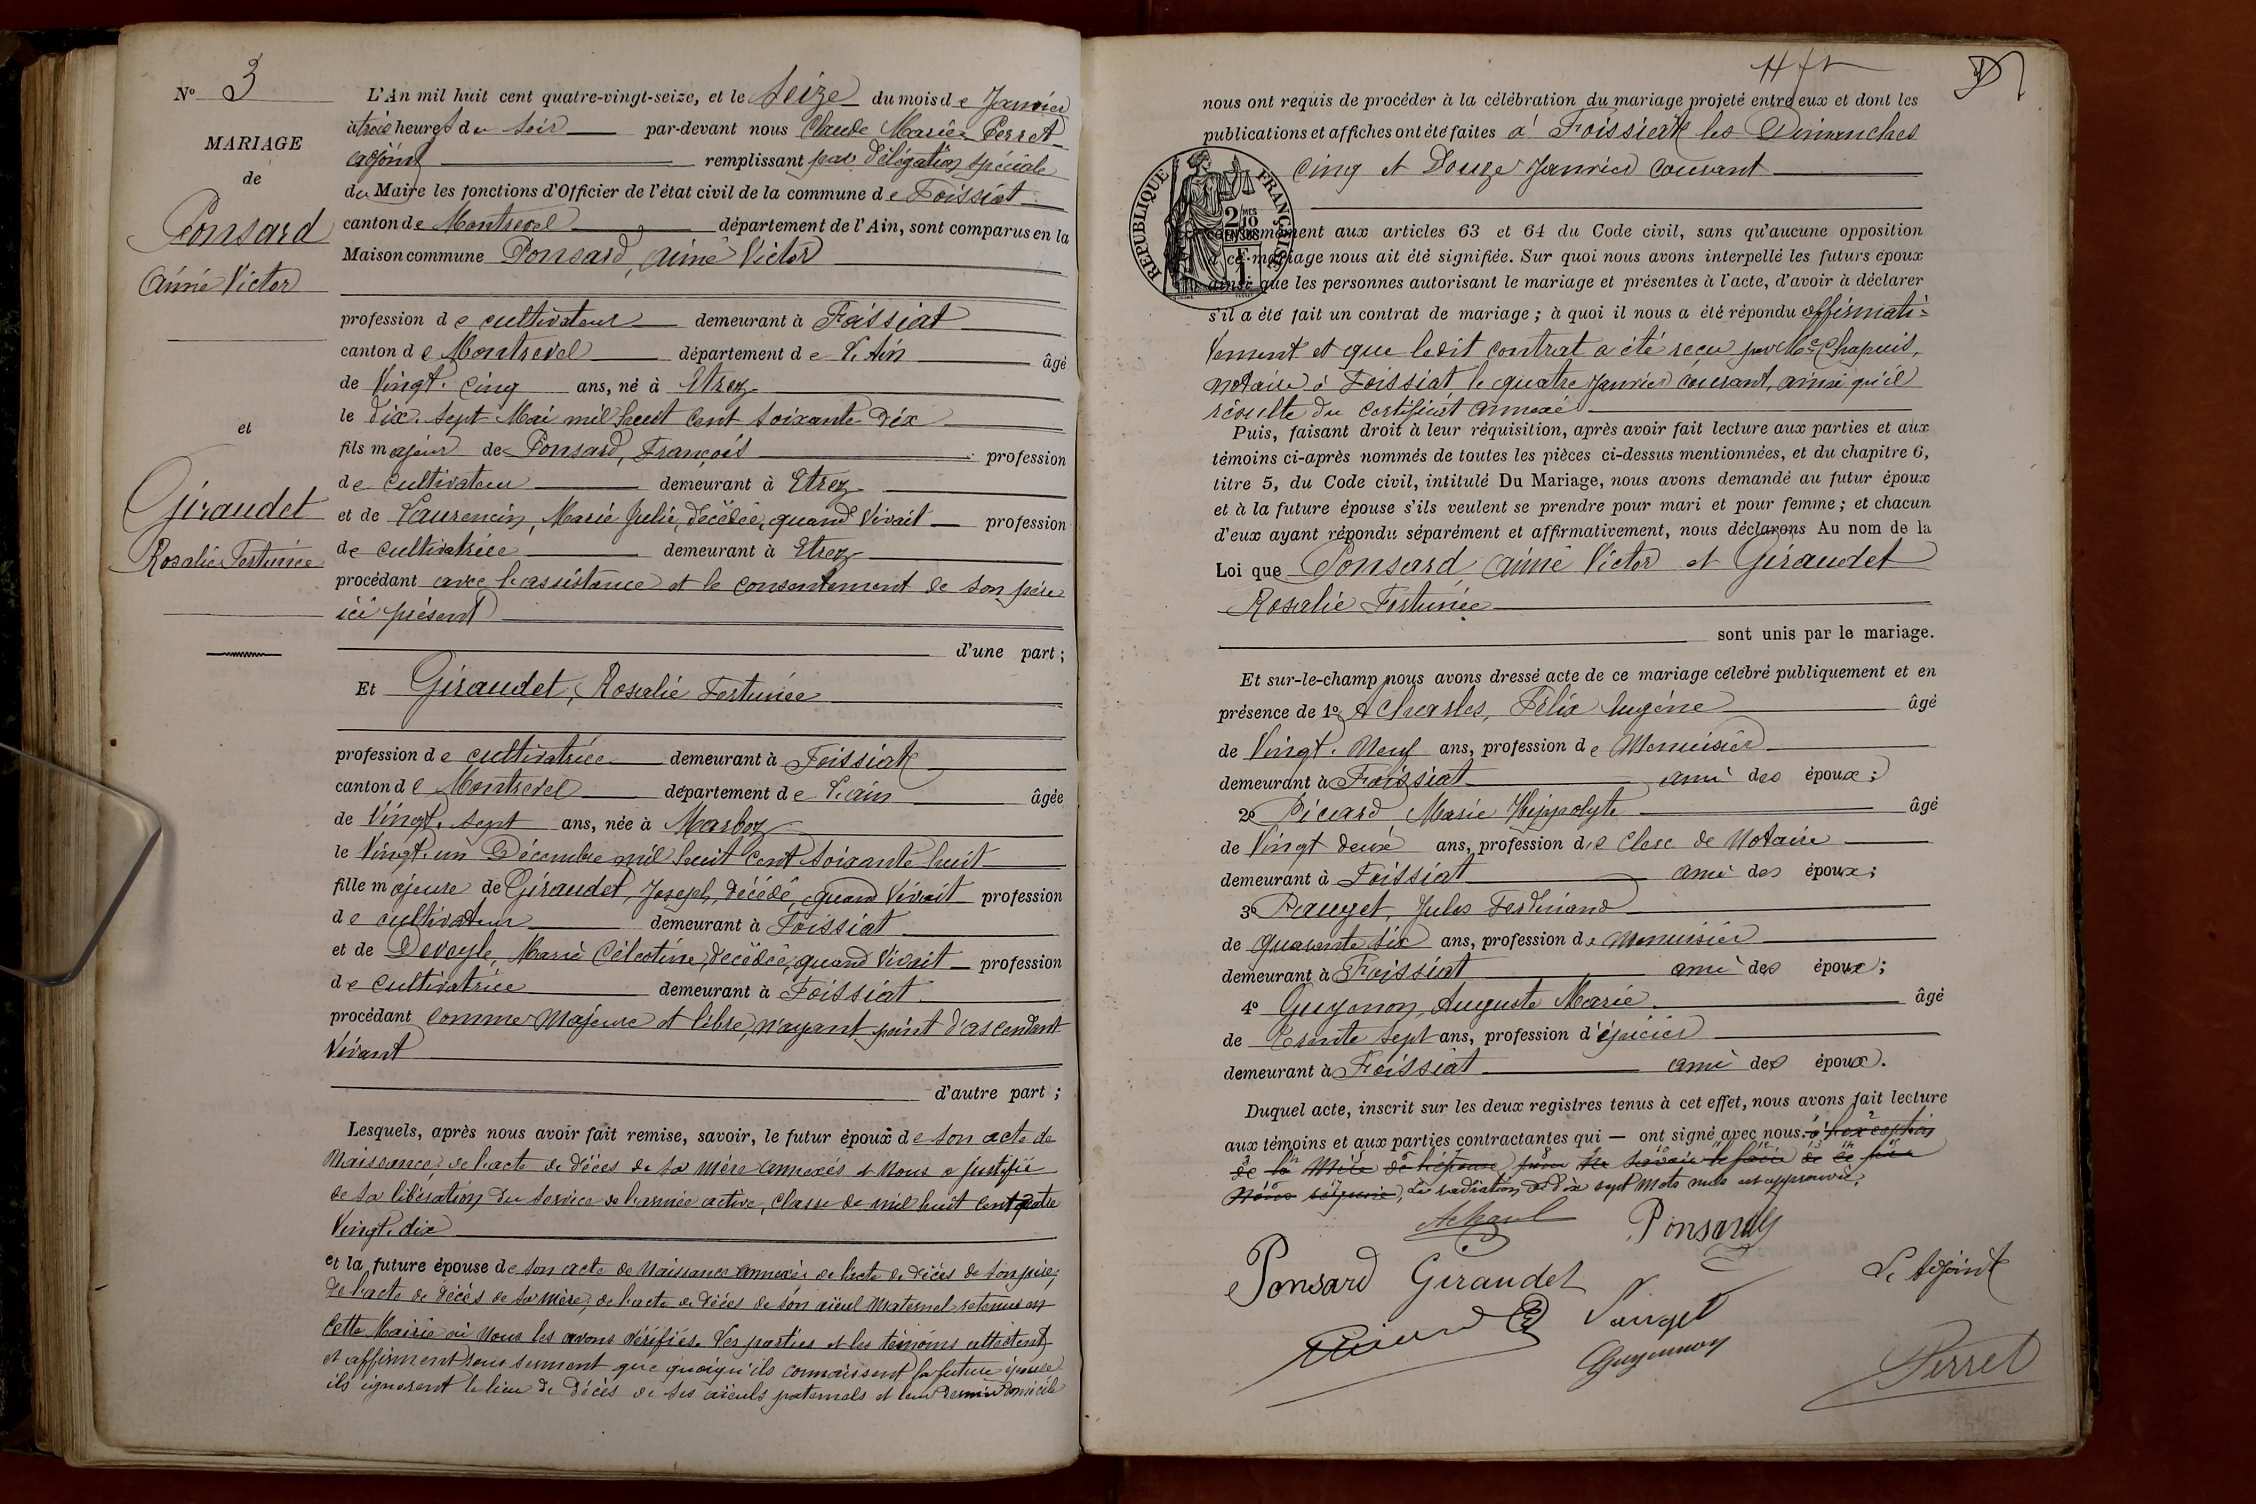 N° 3
MARIAGE
de
Ponsard
Aimé Victor
et
Giraudet
Rosalie Fortunée
L'An mil huit cent quatre-vingt-seize, et le Seize du mois de Janvier
à trois heures du soir par-devant nous Claude Marie Perret
adjoint remplissant par délégation spéciale
du Maire les fonctions d'Officier de l'état civil de la commune de Foissiat
canton de Montrevel département de l'Ain, sont comparus en la
Maison commune Ponsard, aimé Victor
profession de cultivateur demeurant à Foissiat
canton de Montrevel département de L'Ain âgé
de Vingt-cinq ans, né à Etrez
le dix-sept Mai mil huit cent soixante-dix
fils majeur de Ponsard, François profession
de cultivateur demeurant à Etrez
et de Laurencin, Marie Julie, décédée, quand vivait profession
de cultivatrice demeurant à Etrez
procédant avec l'assistance et le consentement de son père
ici présent
d'une part;
Et Giraudet, Rosalie Fortunée
profession de cultivatrice demeurant à Foissiat
canton de Montrevel département de L'ain âgée
de Vingt-sept ans, née à Marboz
le Vingt-un Décembre mil huit cent soixante huit
fille majeure de Giraudet, Joseph, décédé, quand vivait profession
de cultivateur demeurant à Foissiat
et de Deveyle, Marie Célestine, décédée, quand vivait profession
de cultivatrice demeurant à Foissiat
procédant comme Majeure et libre, n'ayant point d'ascendant
vivant
d'autre part;
Lesquels, après nous avoir fait remise, savoir, le futur époux de son acte de
Naissance, de l'acte de décès de sa mère annexés et nous a justifié
de sa libération du service de l'armée active, classe de mil huit cent quatre
Vingt-dix
et la future épouse de son acte de Naissance annexé, de l'acte de décès de son père,
de l'acte de décès de sa mère, de l'acte de décès de son aïeul Maternel retenus en
cette Mairie où nous les avons vérifiés. Les parties et les témoins attestent
et affirment sous serment que quoiqu'ils connaissent la future épouse
ils ignorent le lieu de décès de ses aïeuls paternels et leur dernier domicile
nous ont requis de procéder à la célébration du mariage projeté entre eux et dont les
publications et affiches ont été faites à Foissiat les Dimanches
cinq et Douze Janvier courant
RÉPUBLIQUE FRANÇAISE
2/10
EN SUS
conformément aux articles 63 et 64 du Code civil, sans qu'aucune opposition
à ce mariage nous ait été signifiée. Sur quoi nous avons interpellé les futurs époux
ainsi que les personnes autorisant le mariage et présentes à l'acte, d'avoir à déclarer
s'il a été fait un contrat de mariage; à quoi il nous a été répondu affirmati-
vement et que ledit contrat a été reçu par Me Chapuis,
notaire à Foissiat le quatre Janvier courant, ainsi qu'il
résulte du certificat annexé
Puis, faisant droit à leur réquisition, après avoir fait lecture aux parties et aux
témoins ci-après nommés de toutes les pièces ci-dessus mentionnées, et du chapitre 6,
titre 5, du Code civil, intitulé Du Mariage, nous avons demandé au futur époux
et à la future épouse s'ils veulent se prendre pour mari et pour femme; et chacun
d'eux ayant répondu séparément et affirmativement, nous déclarons Au nom de la
Loi que Ponsard aimé Victor et Giraudet
Rosalie Fortunée
sont unis par le mariage.
Et sur-le-champ nous avons dressé acte de ce mariage célébré publiquement et en
présence de 1° Félix Eugène âgé
de Vingt-Neuf ans, profession de Menuisier
demeurant à Foissiat ami des époux;
2° Marie Hippolyte âgé
de Vingt deux ans, profession de Clerc de Notaire
demeurant à Foissiat ami des époux;
3° Jules Ferdinand
de quarante six ans, profession de Menuisier
demeurant à Foissiat ami des époux;
4° Guyonon, Auguste Marie âgé
de Trente sept ans, profession d'épicier
demeurant à Foissiat ami des époux.
Duquel acte, inscrit sur les deux registres tenus à cet effet, nous avons fait lecture
aux témoins et aux parties contractantes qui — ont signé avec nous
de la Mère de l'épouse
la radiation de dix sept Mots nuls est approuvée.
Ponsard
Ponsard Giraudet
Le Adjoint
Perret